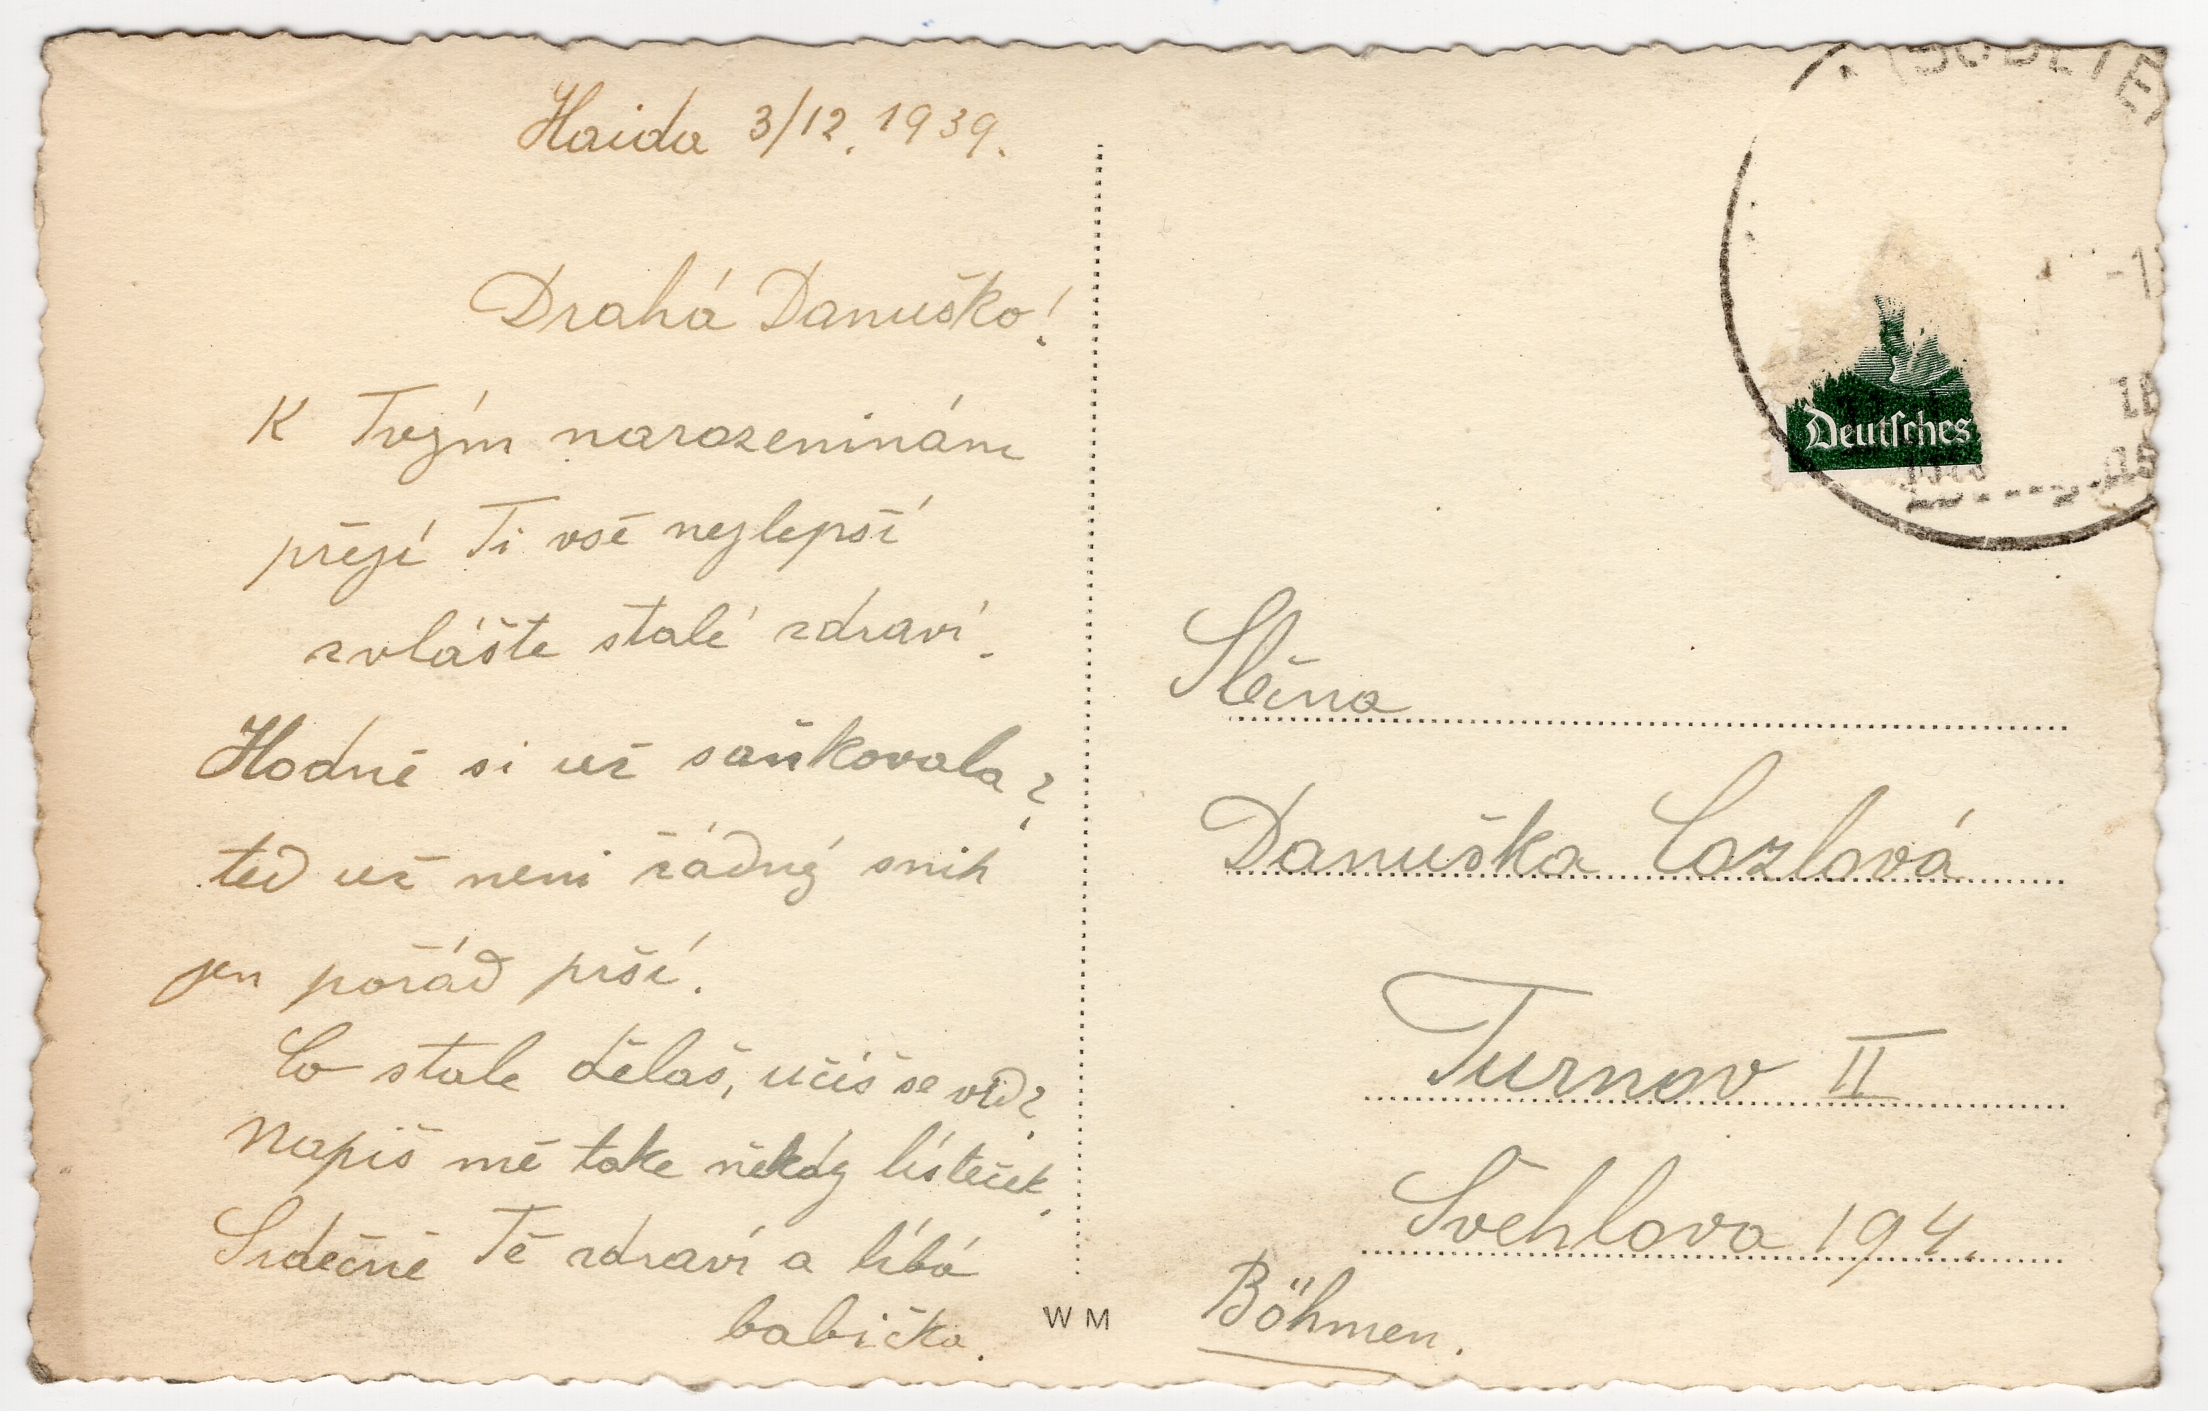 Haida 3/12. 1939.
Drahá Danuško!
K Tvým narozeninám
přejí Ti vše nejlepší
zvláště stálé zdraví.
Hodně si už saňkovala?
teď už neni žádný snih
jen pořád prší.
Co stale děláš, učíš se viď?
Napiš mě take někdy lísteček.
Srdečně Tě zdraví a líbá
babička.
WM
Deutsches
Slečna
Danuška Cozlová
Turnov II
Švehlova 194.
Böhmen.